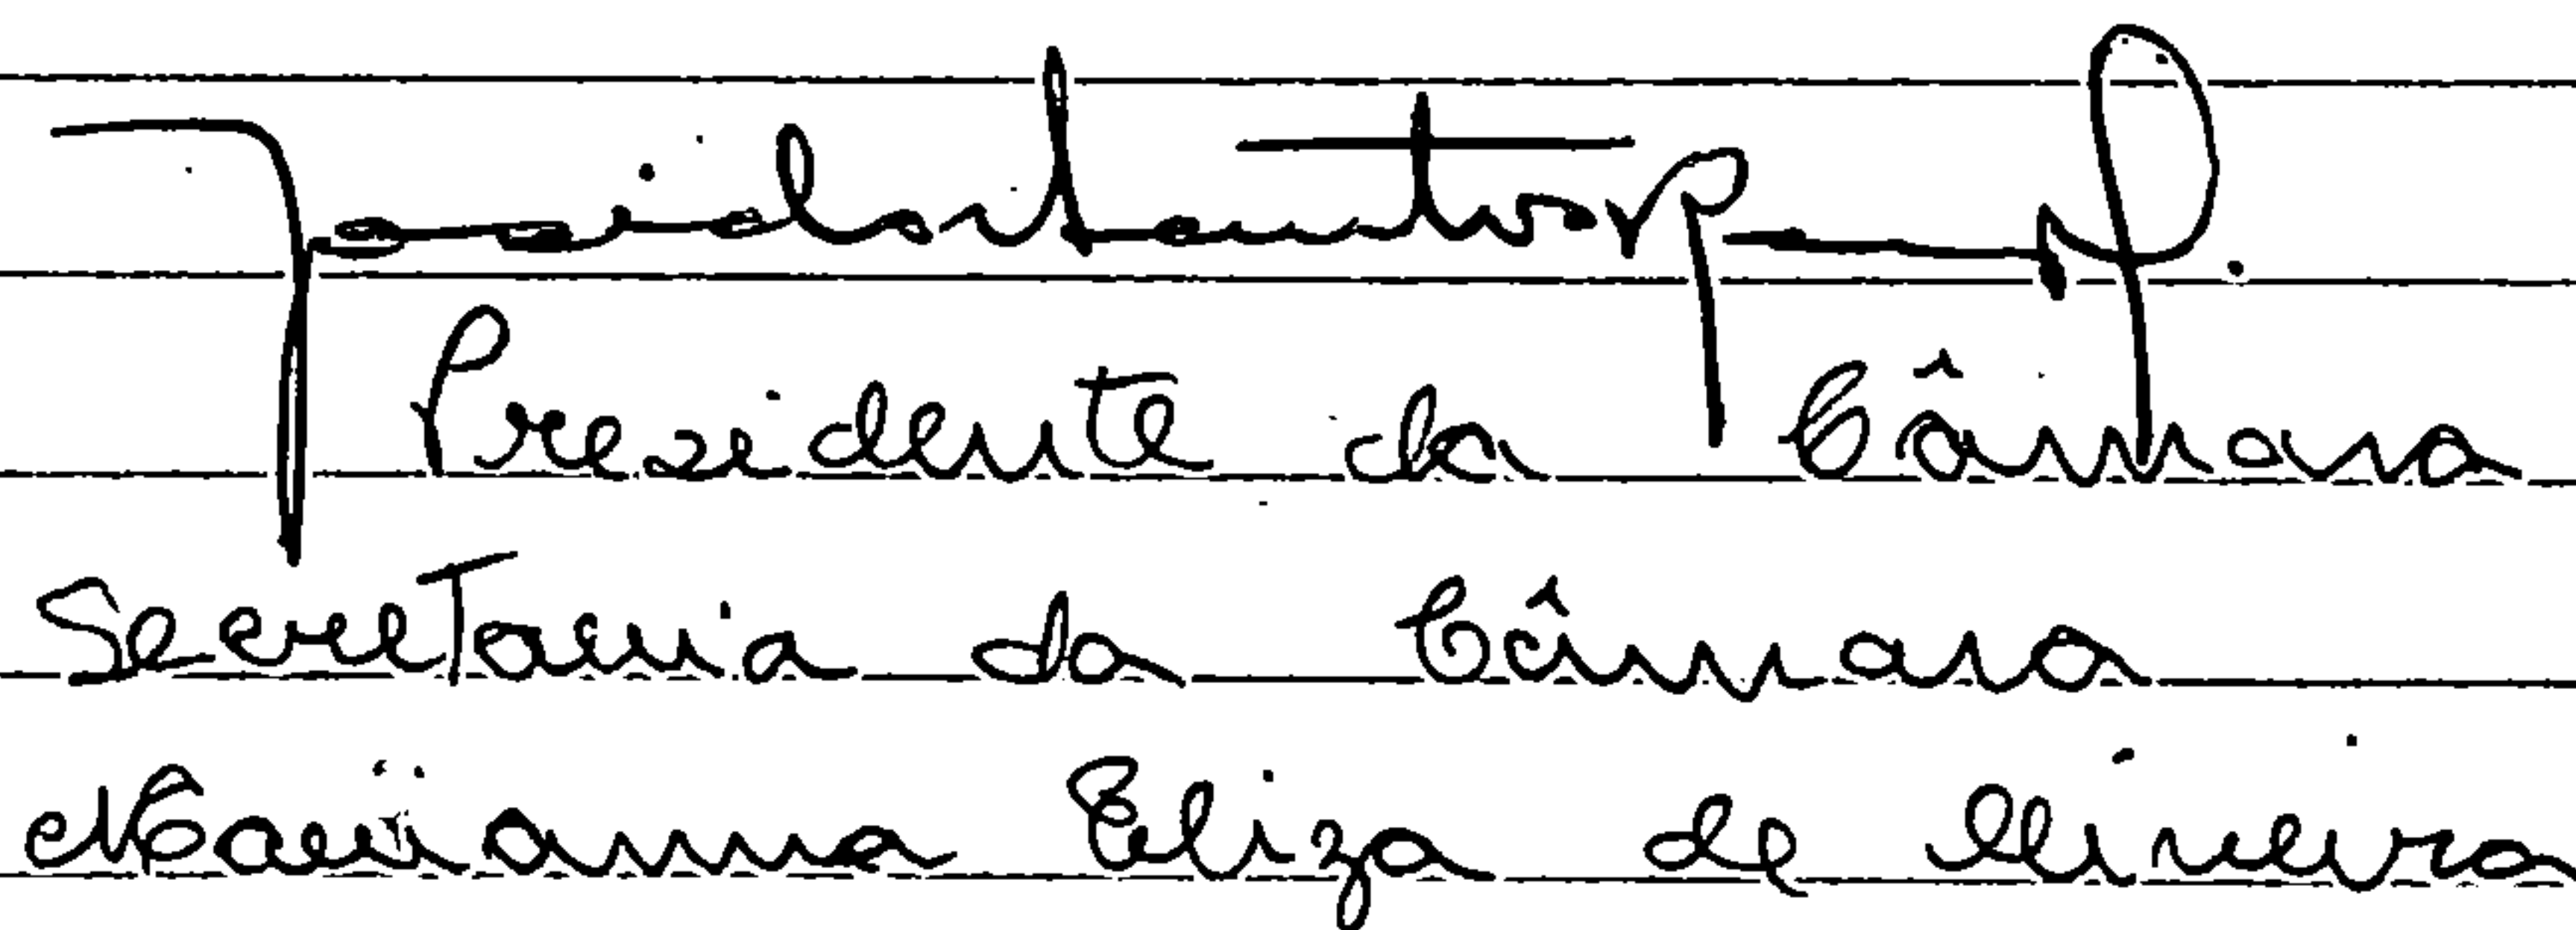 Presidente da Câmara
Secretaria da Câmara
Marianna Eliza de